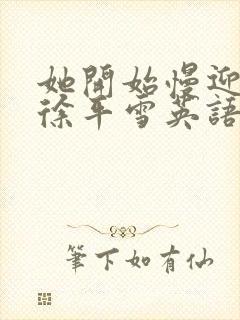 她開始慢迎
徐平雪英語
筆下如有仙